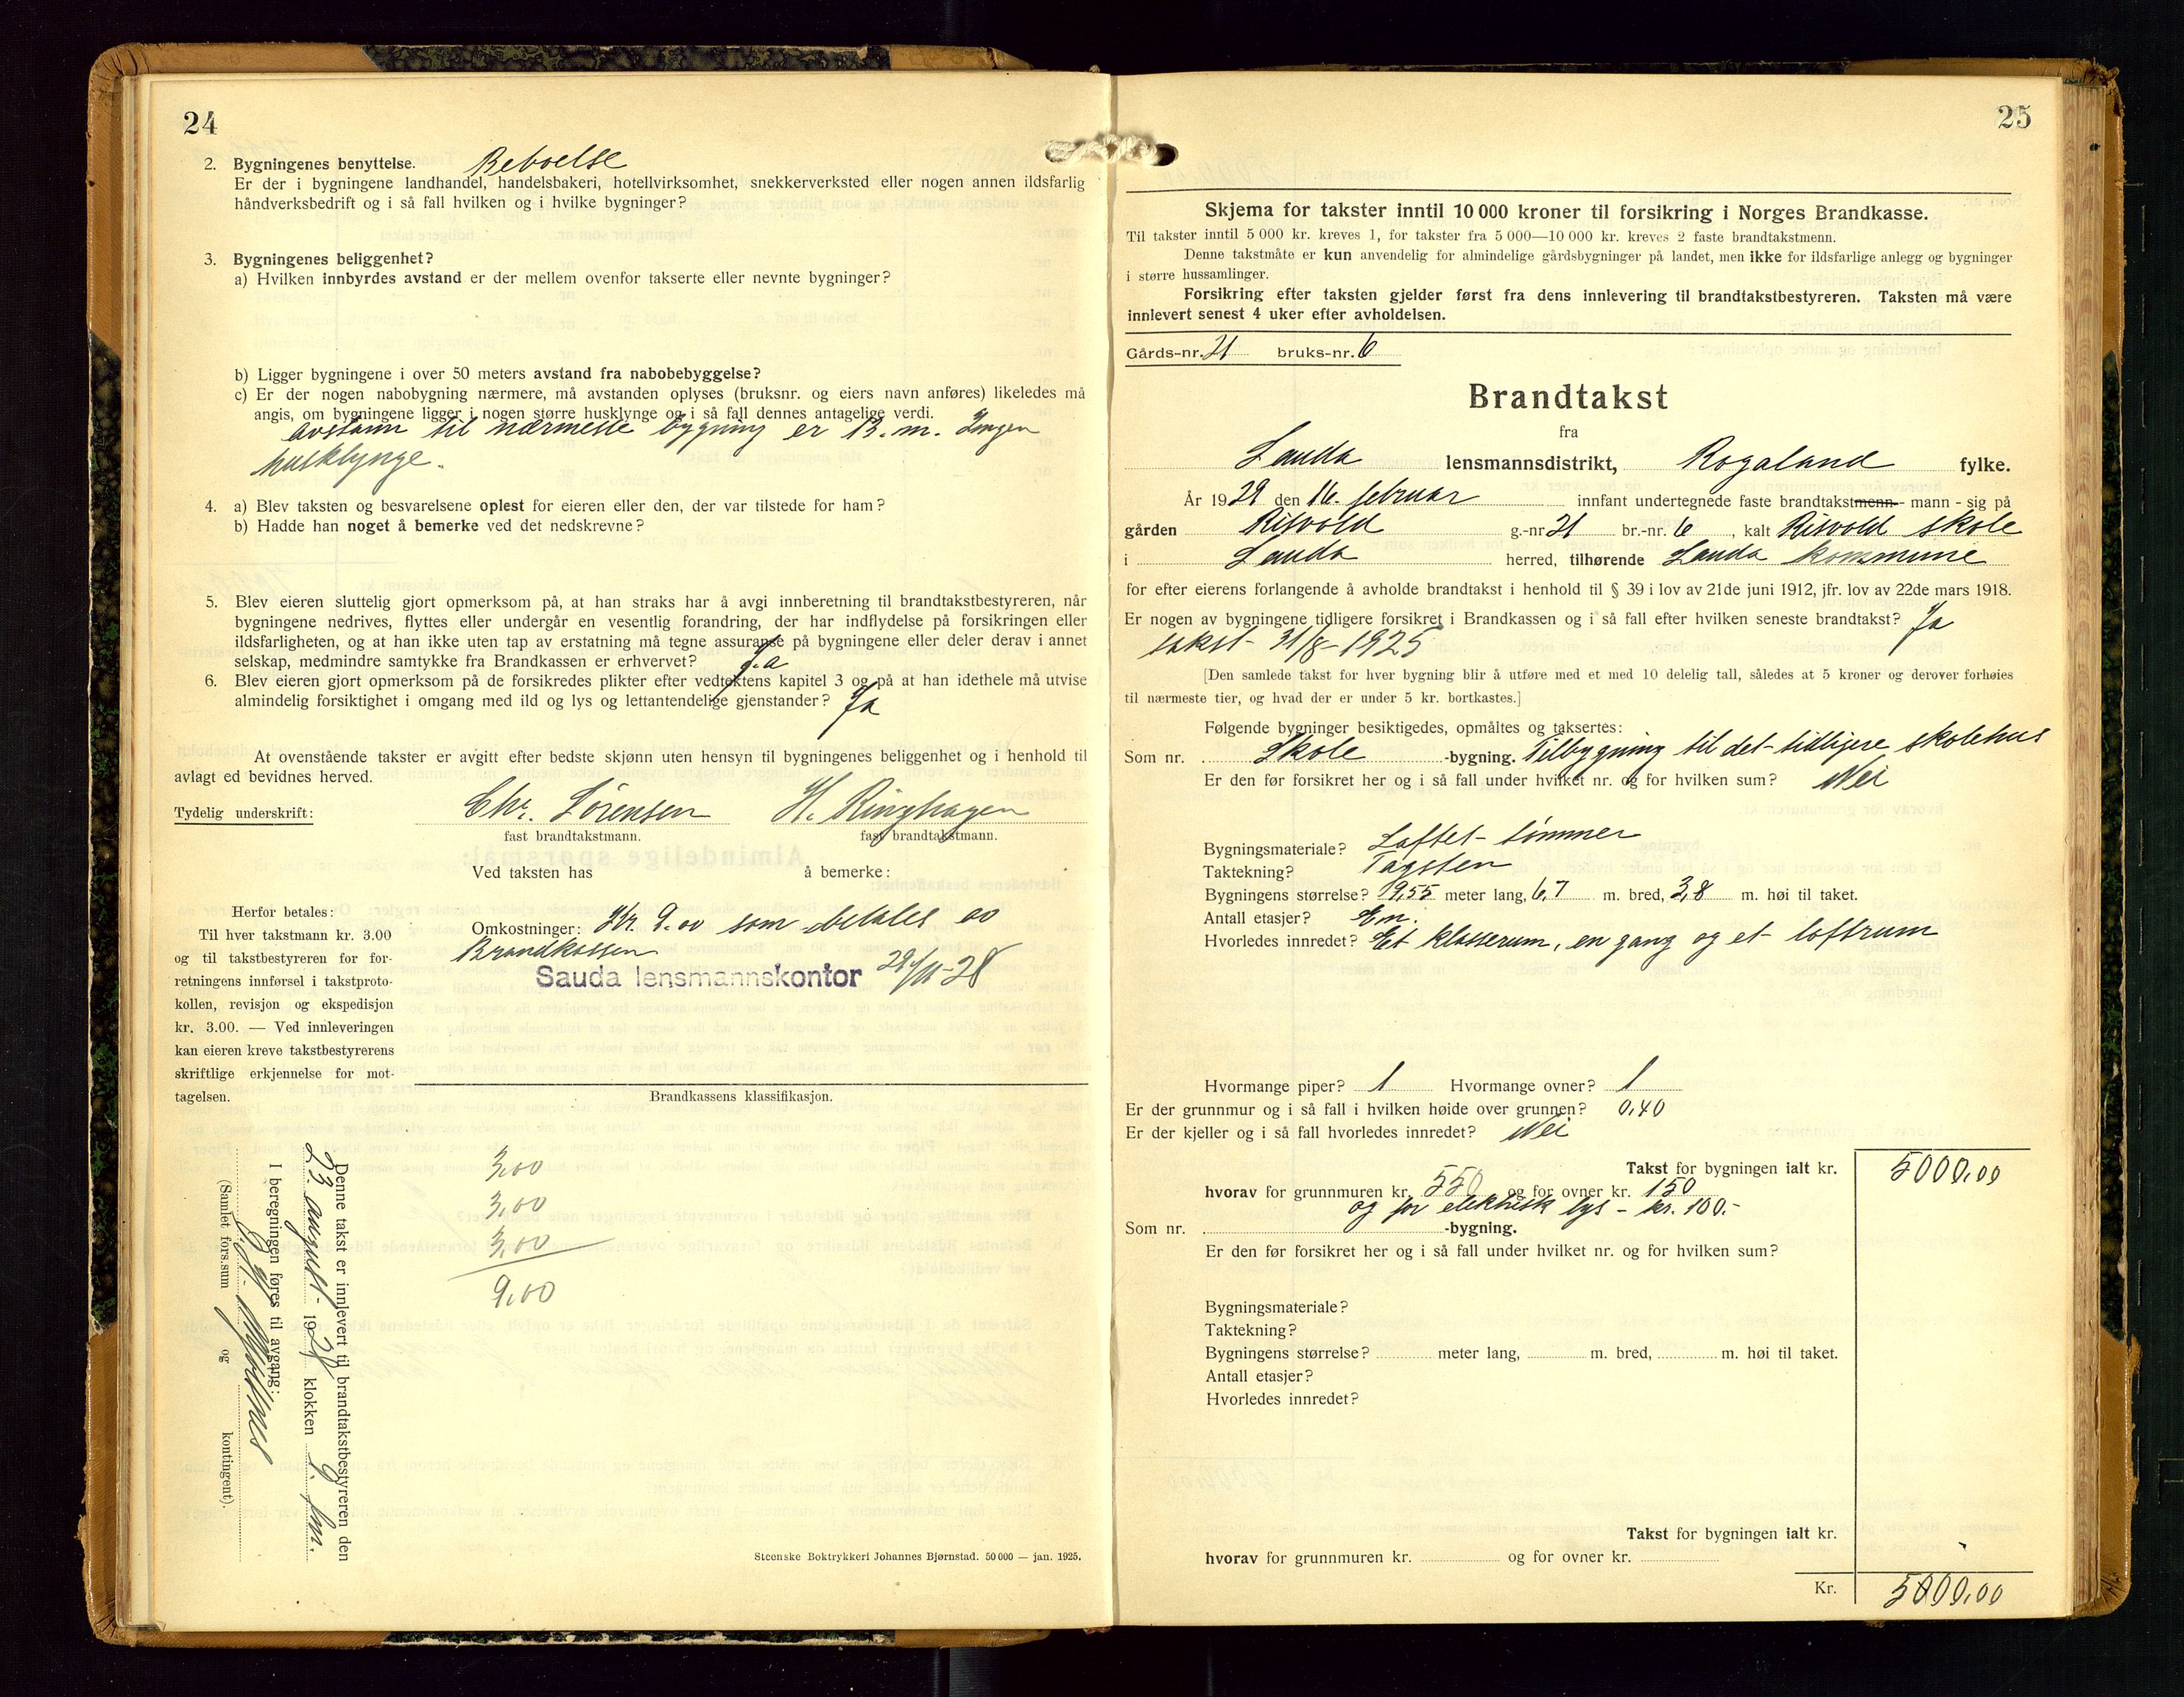 24
2. Bygningenes benyttelse. Beboelse
Er der i bygningene landhandel, handelsbakeri, hotellvirksomhet, snekkerverksted eller nogen annen ildsfarlig
håndverksbedrift og i så fall hvilken og i hvilke bygninger?
3. Bygningenes beliggenhet?
a) Hvilken innbyrdes avstand er der mellem ovenfor takserte eller nevnte bygninger?
b) Ligger bygningene i over 50 meters avstand fra nabobebyggelse?
c) Er der nogen nabobygning nærmere, må avstanden oplyses (bruksnr. og eiers navn anføres) likeledes må
angis, om bygningene ligger i nogen større husklynge og i så fall dennes antagelige verdi.
Avstann til nærmeste bygning er 13. m. Ingen
husklynge.
4. a) Blev taksten og besvarelsene oplest for eieren eller den, der var tilstede for ham?
b) Hadde han noget å bemerke ved det nedskrevne?
5. Blev eieren sluttelig gjort opmerksom på, at han straks har å avgi innberetning til brandtakstbestyreren, når
bygningene nedrives, flyttes eller undergår en vesentlig forandring, der har indflydelse på forsikringen eller
ildsfarligheten, og at han ikke uten tap av erstatning må tegne assuranse på bygningene eller deler derav i annet
selskap, medmindre samtykke fra Brandkassen er erhvervet? Ja
6. Blev eieren gjort opmerksom på de forsikredes plikter efter vedtektens kapitel 3 og på at han idethele må utvise
almindelig forsiktighet i omgang med ild og lys og lettantendelige gjenstander? Ja
At ovenstående takster er avgitt efter bedste skjønn uten hensyn til bygningenes beliggenhet og i henhold til
avlagt ed bevidnes herved.
Tydelig underskrift: Chr. Sørensen H. Ringhagen
fast brandtakstmann. fast brandtakstmann.
Ved taksten has å bemerke:
Herfor betales:
Til hver takstmann kr. 3.00
og til takstbestyreren for for-
retningens innførsel i takstproto-
kollen, revisjon og ekspedisjon
kr. 3.00. — Ved innleveringen
kan eieren kreve takstbestyrerens
skriftlige erkjennelse for mot-
tagelsen.
Omkostninger: Kr. 9.00 som betales av
Brandkassen
Sauda lensmannskontor 29/11-28
Brandkassens klassifikasjon.
3,00
3,00
3,00
9,00
Denne takst er innlevert til brandtakstbestyreren den
23 august 1928 klokken 9 fm.
I beregningen føres til avgang:
(Samlet fors.sum og kontingent).
Steenske Boktrykkeri Johannes Bjørnstad. 50 000 — jan. 1925.
25
Skjema for takster inntil 10 000 kroner til forsikring i Norges Brandkasse.
Til takster inntil 5 000 kr. kreves 1, for takster fra 5 000—10 000 kr. kreves 2 faste brandtakstmenn.
Denne takstmåte er kun anvendelig for almindelige gårdsbygninger på landet, men ikke for ildsfarlige anlegg og bygninger
i større hussamlinger.
Forsikring efter taksten gjelder først fra dens innlevering til brandtakstbestyreren. Taksten må være
innlevert senest 4 uker efter avholdelsen.
Gårds-nr. 21 bruks-nr. 6
Brandtakst
fra
Sauda lensmannsdistrikt, Rogaland fylke.
År 1929 den 16. februar innfant undertegnede faste brandtakstmenn- mann - sig på
gården Risvold g.-nr 21 br.-nr. 6, kalt Risvold skole
i Sauda herred, tilhørende Sauda kommune
for efter eierens forlangende å avholde brandtakst i henhold til § 39 i lov av 21de juni 1912, jfr. lov av 22de mars 1918.
Er nogen av bygningene tidligere forsikret i Brandkassen og i så fall efter hvilken seneste brandtakst? Ja
takst 31/8-1925
[Den samlede takst for hver bygning blir å utføre med et med 10 delelig tall, således at 5 kroner og derover forhøies
til nærmeste tier, og hvad der er under 5 kr. bortkastes.]
Følgende bygninger besiktigedes, opmåltes og taksertes:
Som nr. Skole -bygning. Tilbygning til det tidligere skolehus
Er den før forsikret her og i så fall under hvilket nr. og for hvilken sum? Nei
Bygningsmateriale? Laftet tømmer
Taktekning? Tagsten
Bygningens størrelse? 19,55 meter lang, 6,7 m. bred, 3,8 m. høi til taket.
Antall etasjer? En.
Hvorledes innredet? Et klasserum, en gang og et loftrum
Hvormange piper? 1 Hvormange ovner? 1
Er der grunnmur og i så fall i hvilken høide over grunnen? 0,40
Er der kjeller og i så fall hvorledes innredet? Nei
Takst for bygningen ialt kr. 5000,00
hvorav for grunnmuren kr. 550 og for ovner kr. 150
og for elektrisk lys - kr. 100.-
Som nr. -bygning.
Er den før forsikret her og i så fall under hvilket nr. og for hvilken sum?
Bygningsmateriale?
Taktekning?
Bygningens størrelse? meter lang, m. bred, m. høi til taket.
Antall etasjer?
Hvorledes innredet?
Takst for bygningen ialt kr.
hvorav for grunnmuren kr. og for ovner kr.
Kr. 5000,00